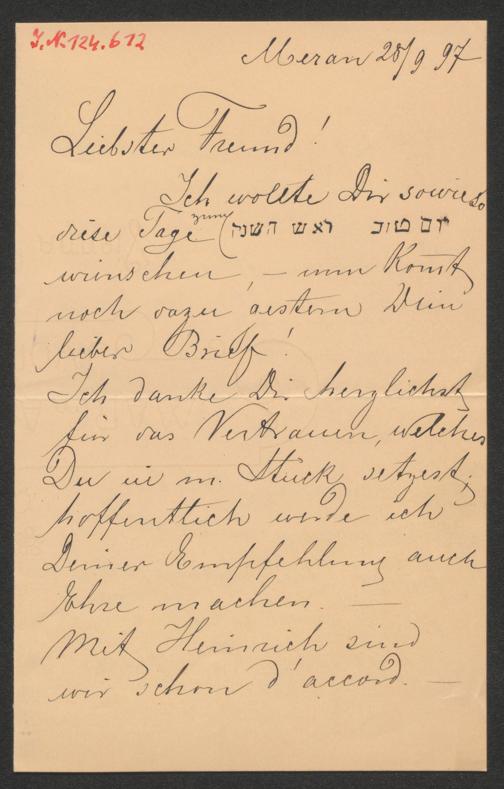 J.N. 124.612
Meran 28/9 97
Liebster Freund!
Ich wollte Dir sowieso
diese Tage zum (ראש השנה יום טוב
wünschen, – nun komt
noch dazu gestern Dein
lieber Brief!
Ich danke Dir herzlichst
für das Vertrauen, welches
Du in m. Stück setzest,
hoffentlich werde ich
Deiner Empfehlung auch
Ehre machen. —
Mit Heinrich sind
wir schon d'accord. —